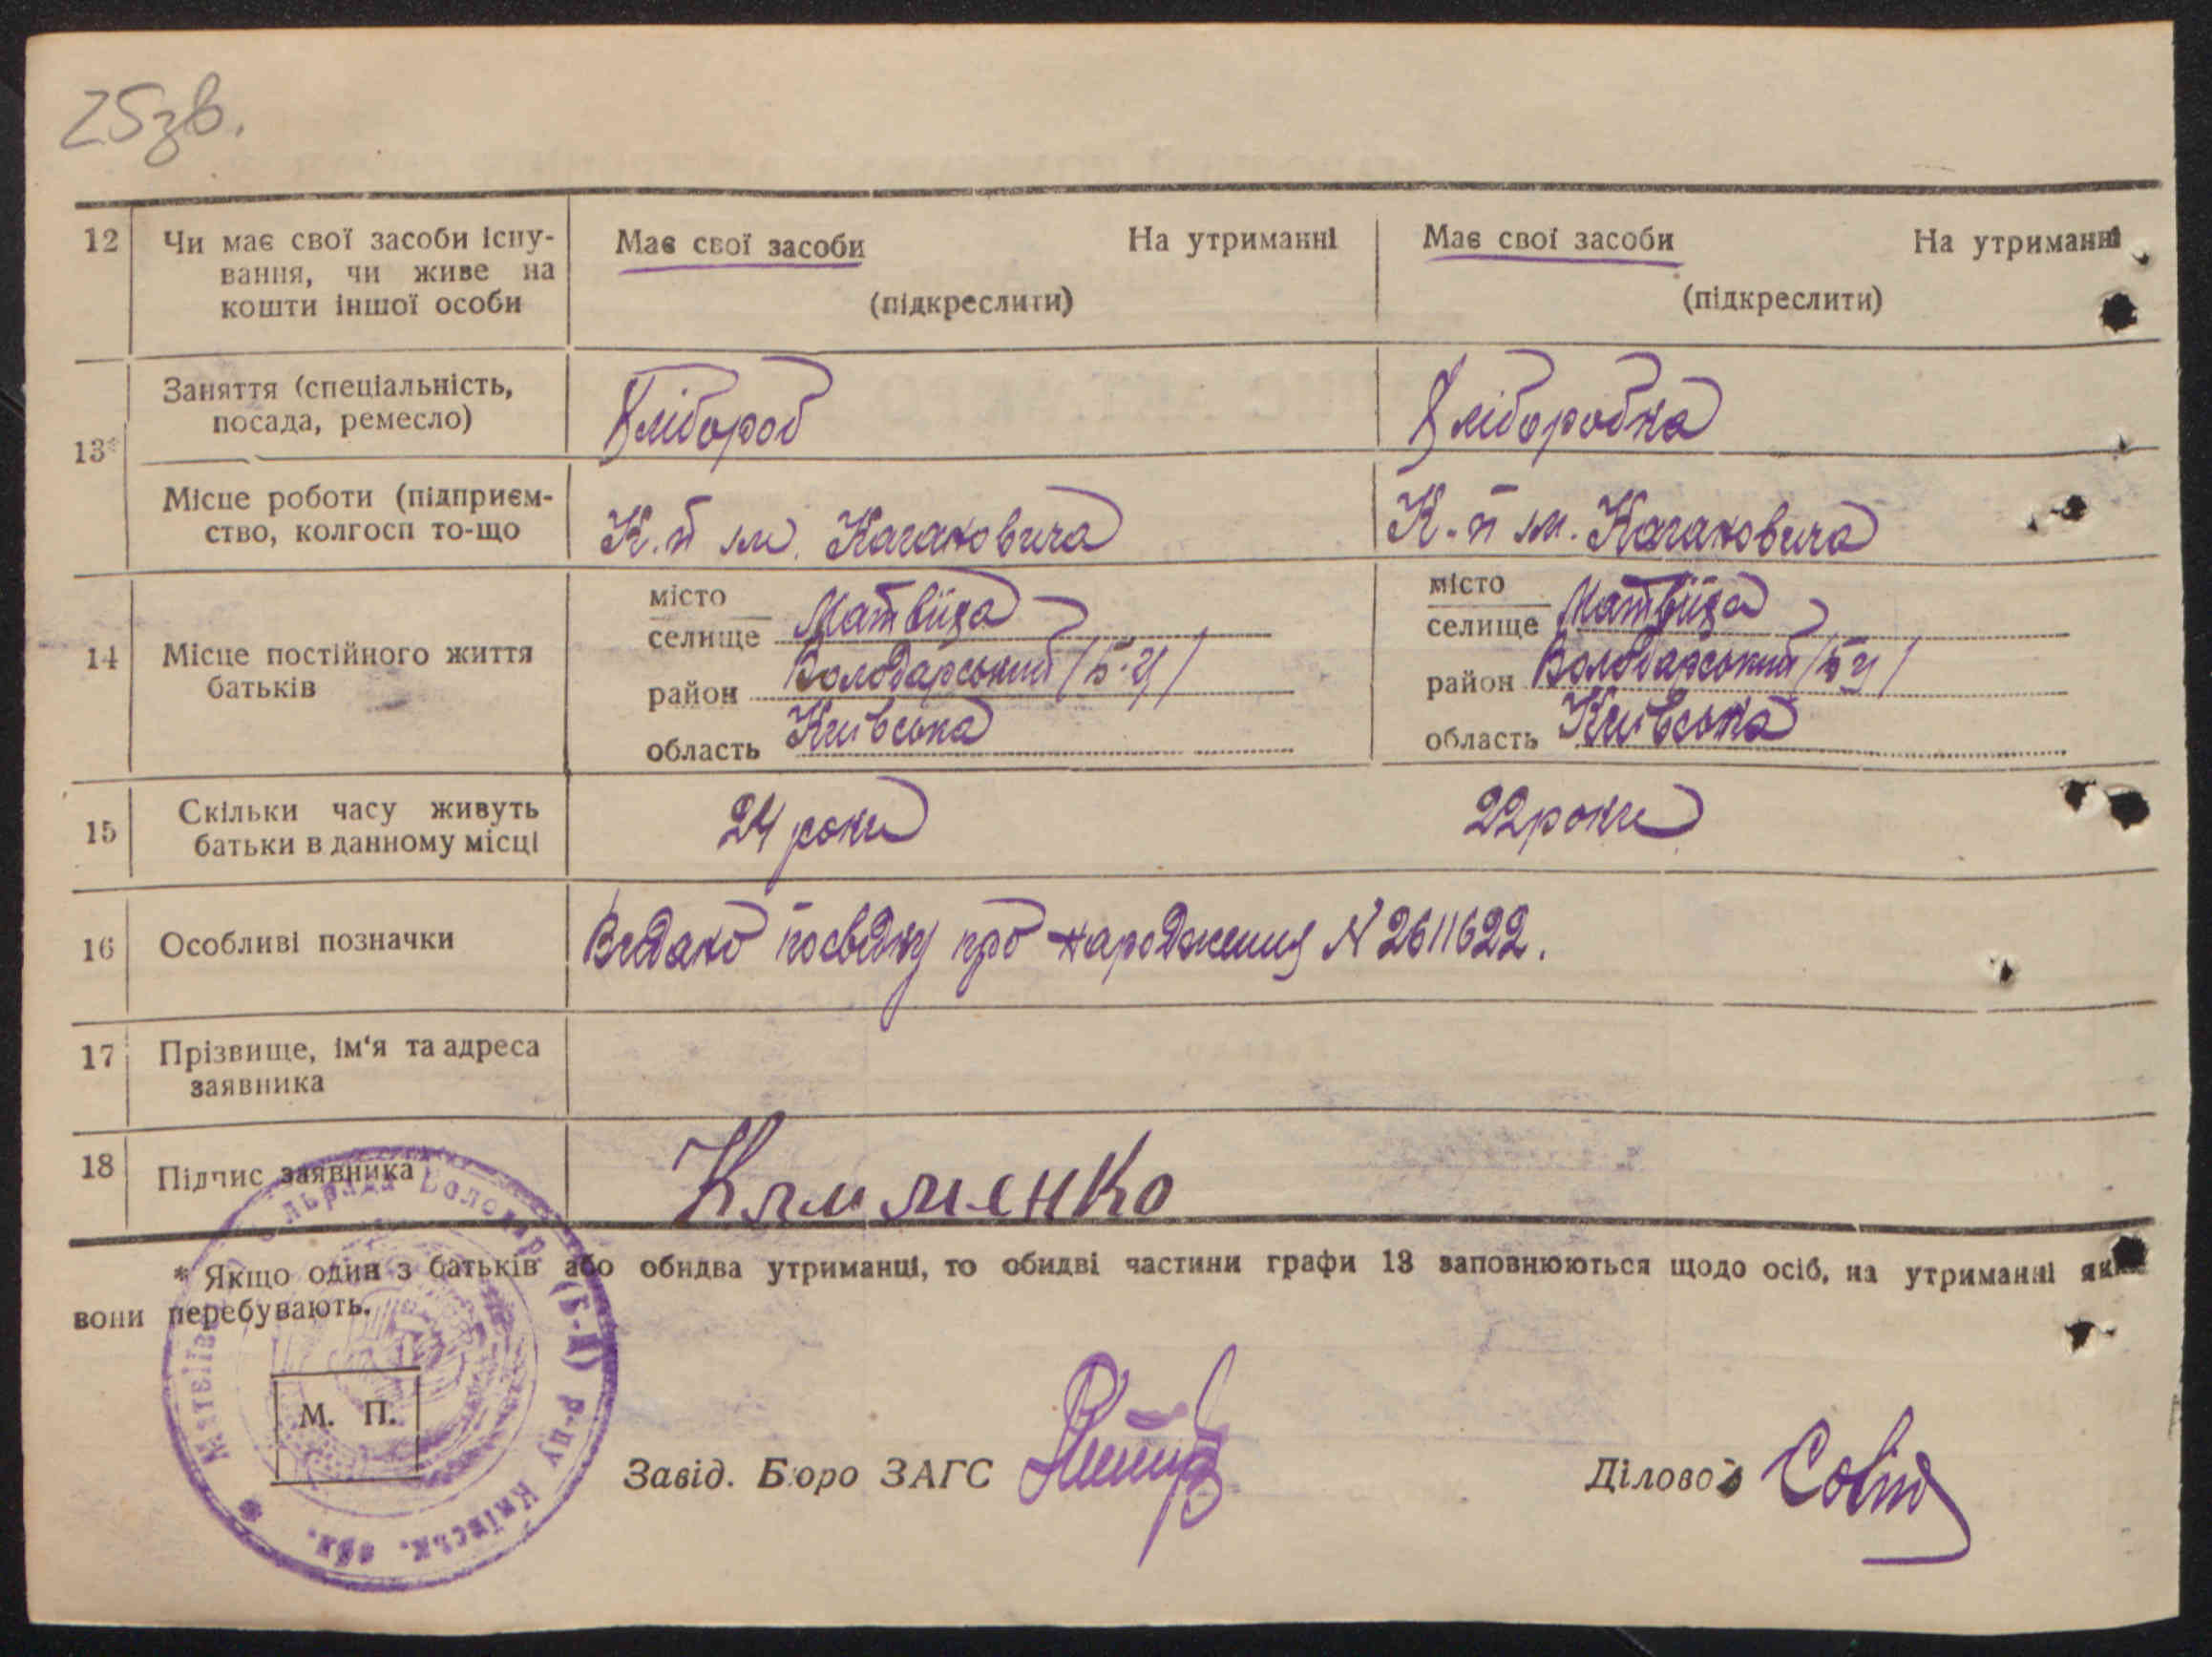 25зв.
12 Чи має свої засоби існу- Має свої засоби На утриманні Має свої засоби На утриманні
вання, чи живе на
кошти іншої особи (підкреслити) (підкреслити)
Заняття (спеціальність, Хлібороб Хлібородка
посада, ремесло)
13*
Місце роботи (підприєм- К. п ім. Кагановича К. п ім. Кагановича
ство, колгосп то-що
місто Матвіїха місто Матвіїха
селище селище
14 Місце постійного життя район Володарський /Б-Ц/ район Володарський /Б-Ц/
батьків
область Київська область Київська
15 Скільки часу живуть 24 роки 22 роки
батьки в данному місці
16 Особливі позначки Видано посвідку про народження N 2611622.
17 Прізвище, ім'я та адреса
заявника
18 Підпис заявника Клименко
* Якщо один з батьків або обидва утриманці, то обидві частини графи 13 заповнюються щодо осіб, на утриманні яких
вони перебувають.
М. П.
Завід. Бюро ЗАГС Діловод
сільрада Володар. (Б-Ц) р-ну Київськ. обл.